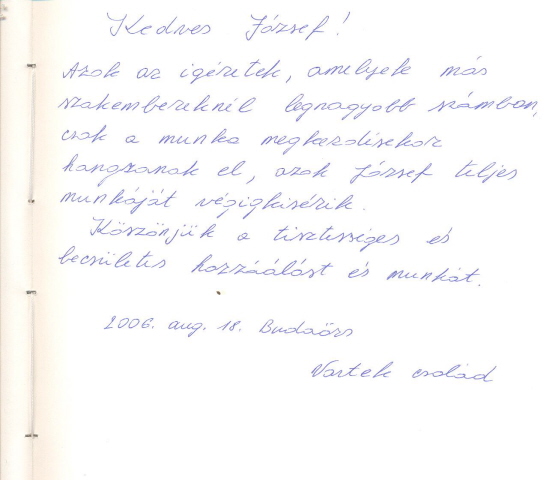 Kedves József!
Azok az igéretek, amelyek más
szakembereknél legnagyobb számban,
csak a munka megkezdésekor
hangzanak el, azok József teljes
munkáját végigkisérik.
Köszönjük a tisztességes és
becsületes hozzáálást és munkát.
2006. aug. 18. Budaörs
Vartek család